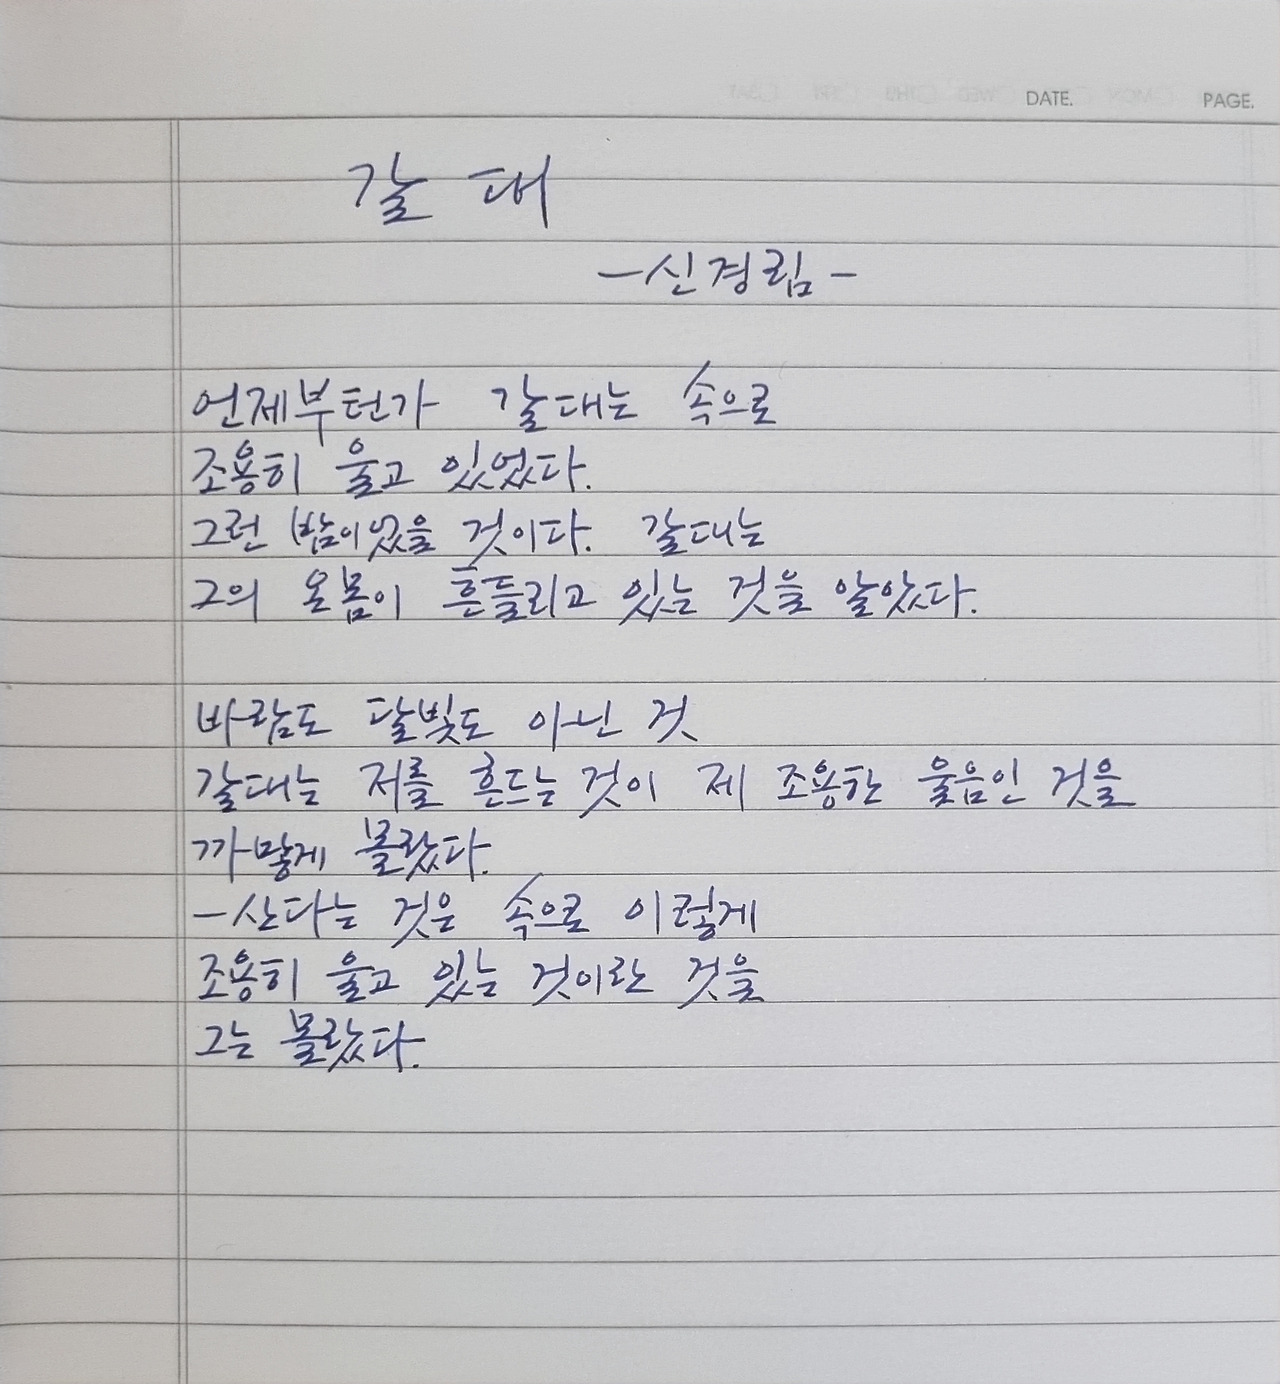 DATE. PAGE.
갈 대
-신경림-
언제부턴가 갈대는 속으로
조용히 울고 있었다.
그런 밤이었을 것이다. 갈대는
그의 온몸이 흔들리고 있는 것을 알았다.
바람도 달빛도 아닌 것
갈대는 저를 흔드는 것이 제 조용한 울음인 것을
까맣게 몰랐다.
-산다는 것은 속으로 이렇게
조용히 울고 있는 것이란 것을
그는 몰랐다.